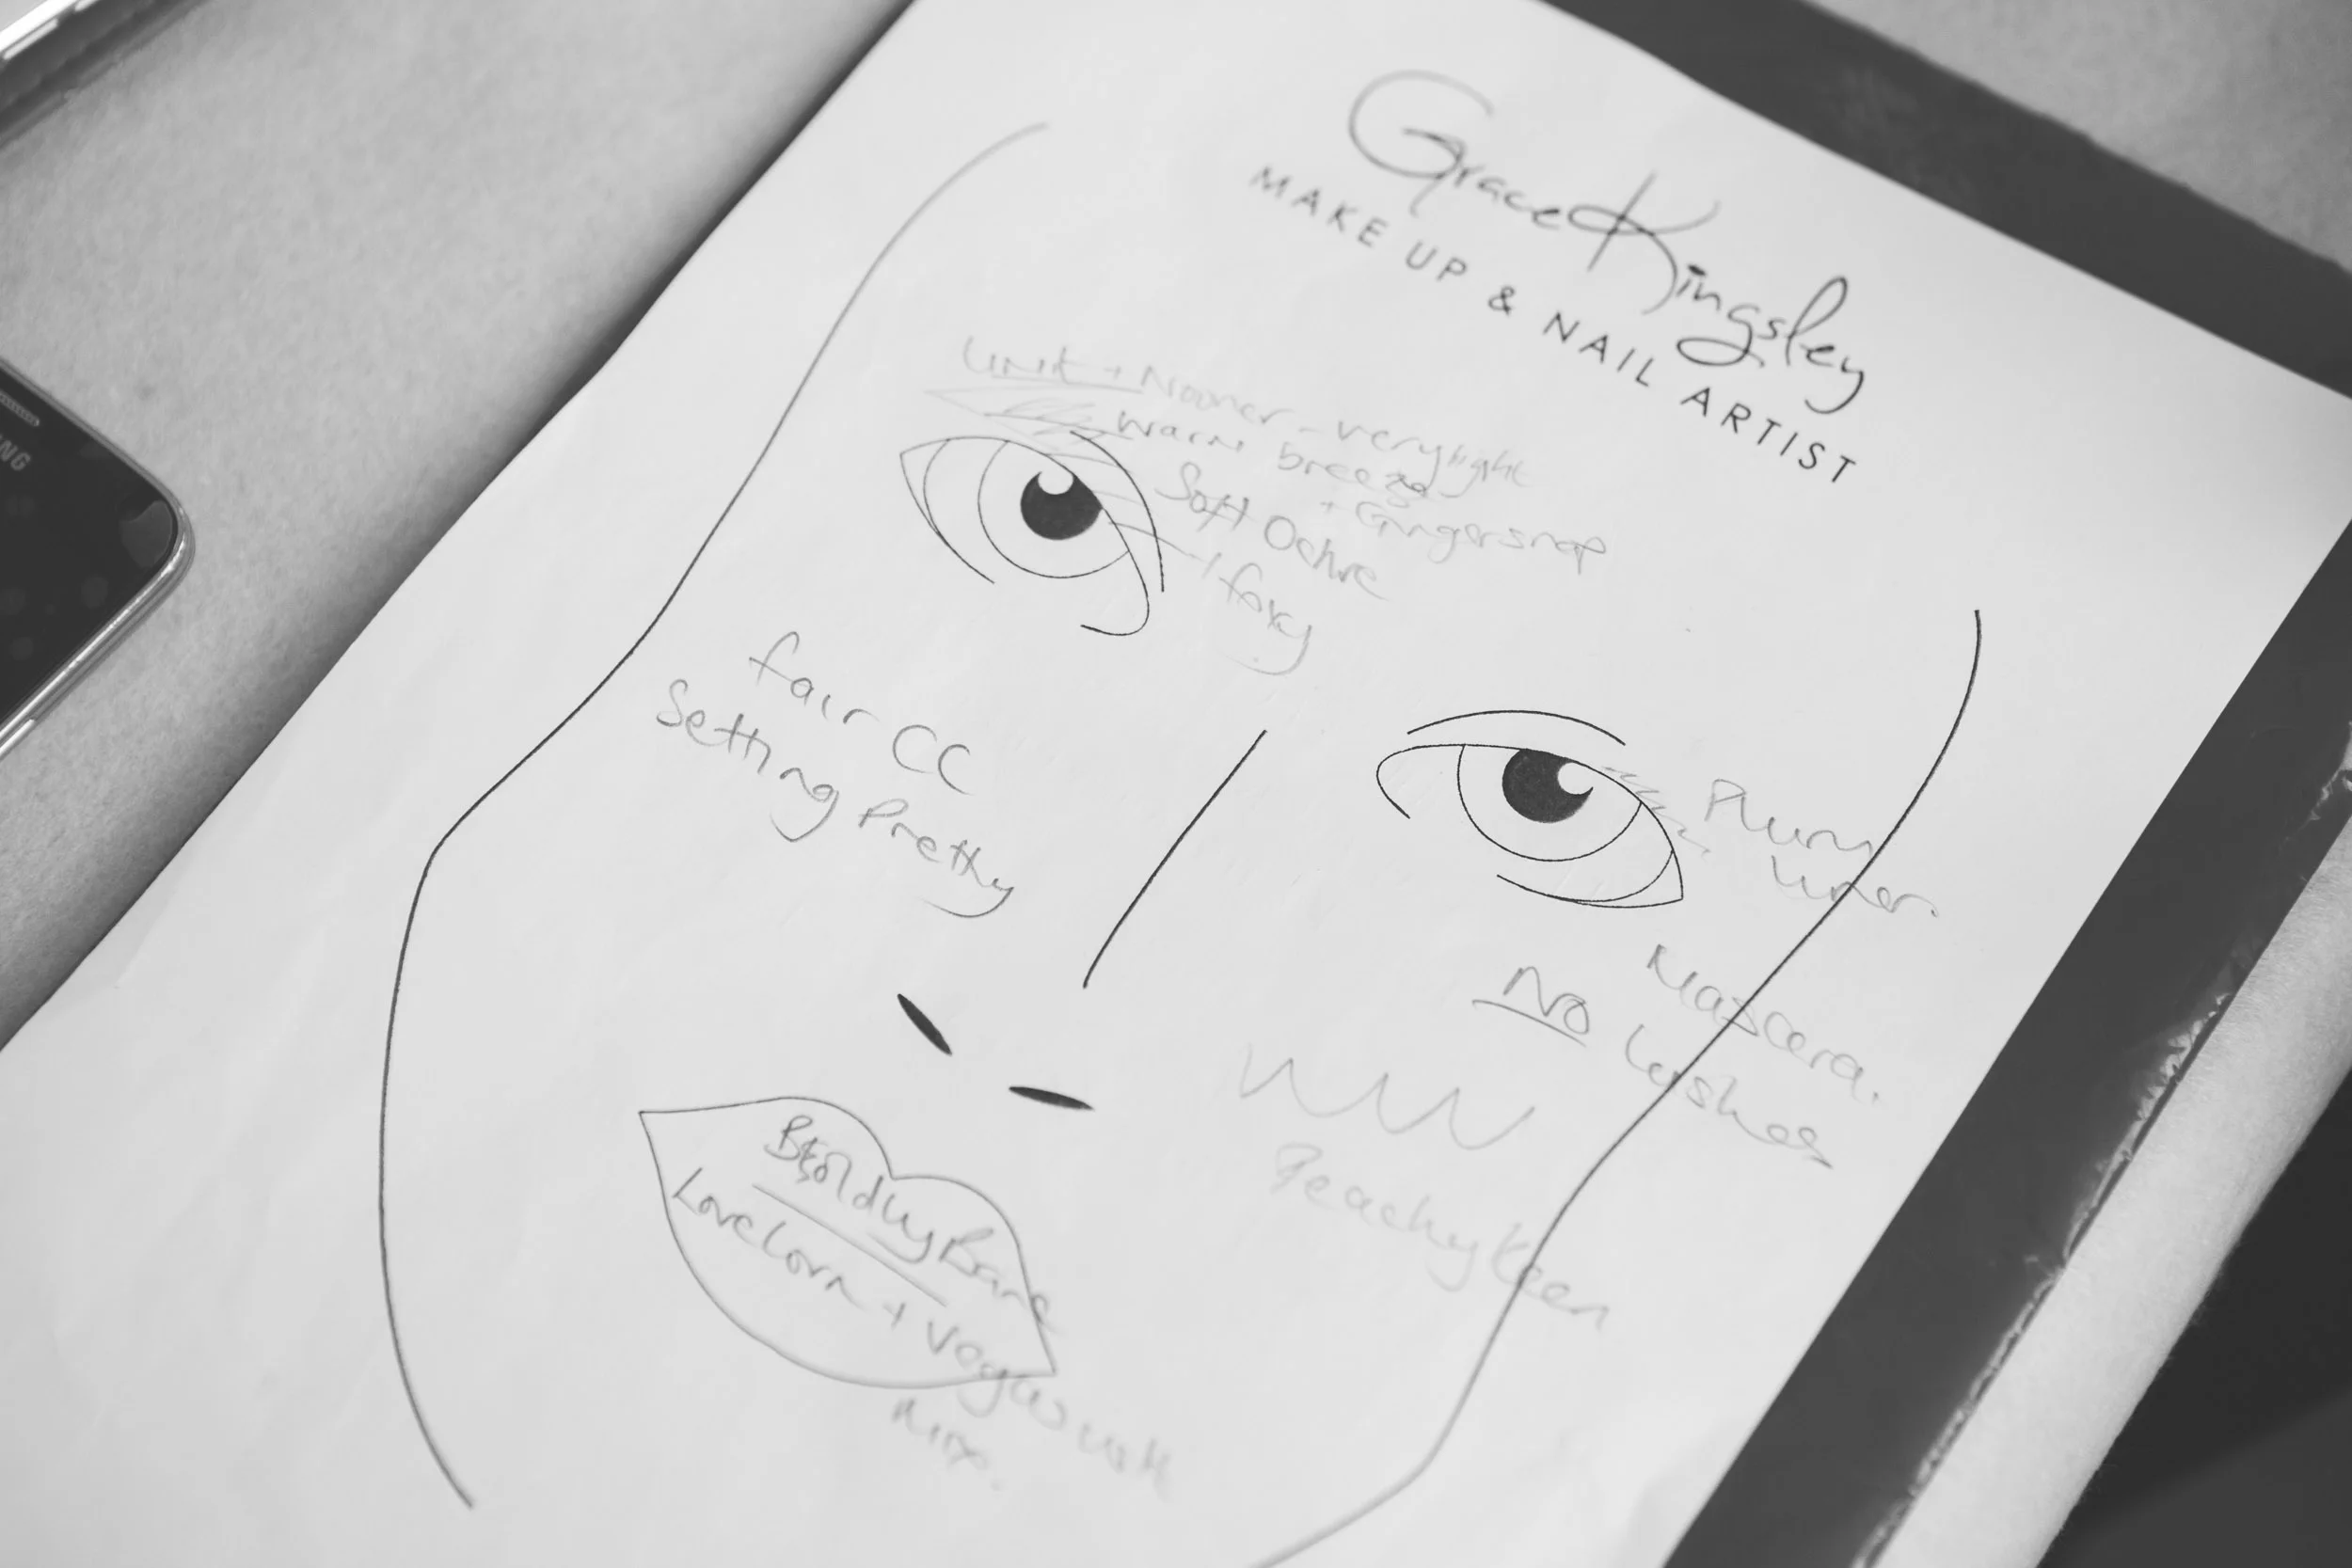 Grace Kingsley
MAKE UP & NAIL ARTIST
+ Nooner - very light
warm breeze
+ Gingersnap
Soft Ochre
foxy
fair CC
Setting Pretty
Plum
liner.
Mascara.
No Lashes
Peachykeen
Boldly Bare
Lovelorn + Vegas volt
mix.
NG